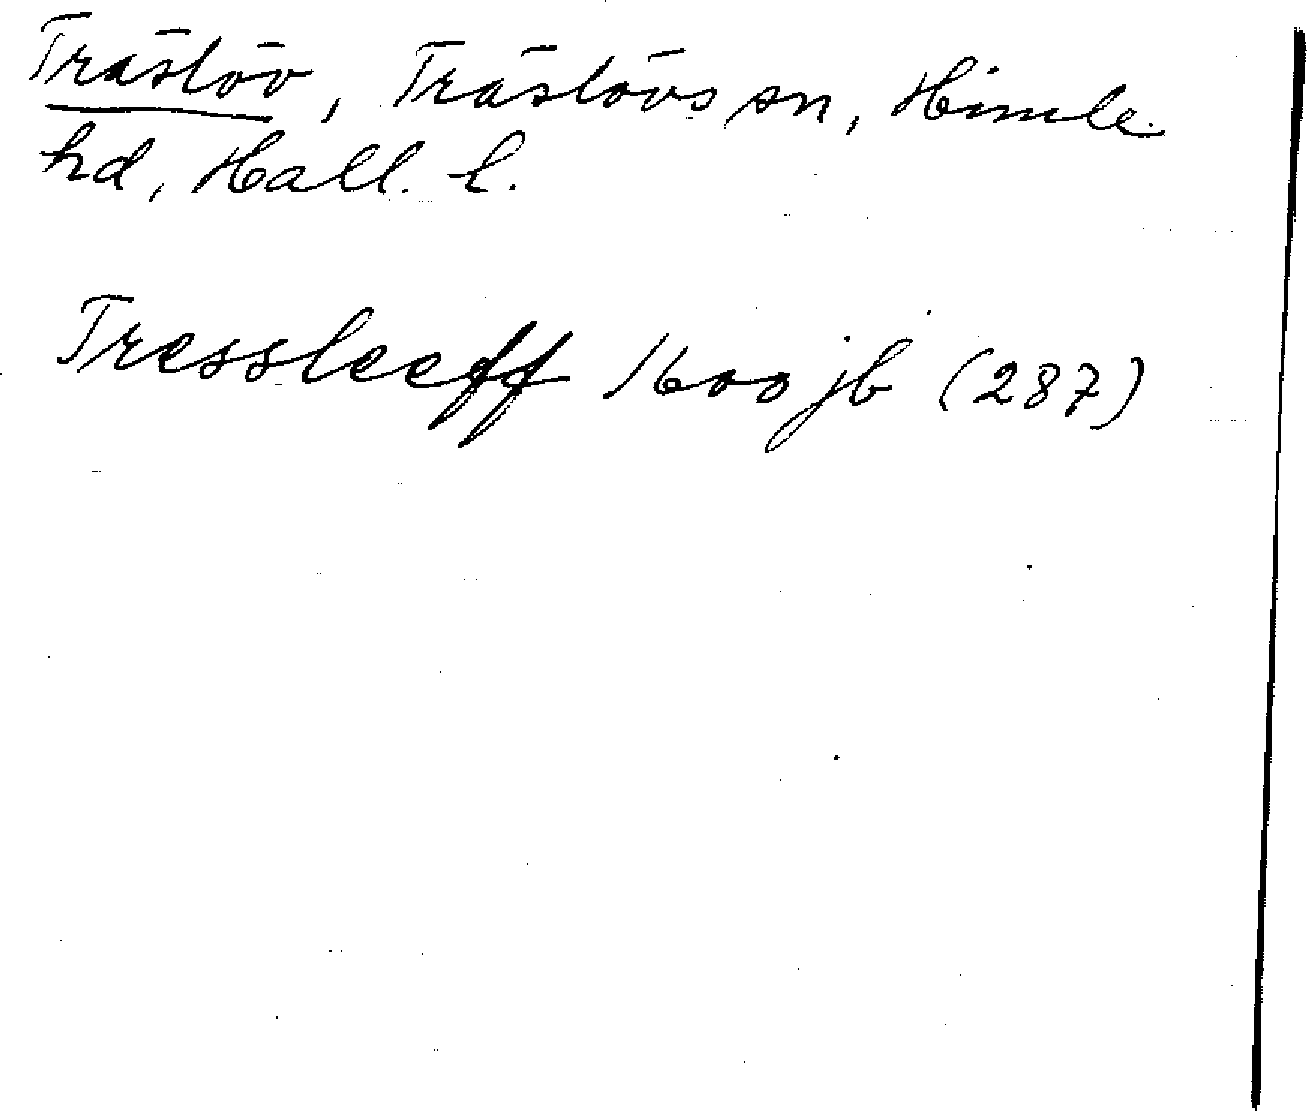 Träslöv, Träslövs sn, Himle
hd, Hall. l.
Tressleeff 1600 jb (287)